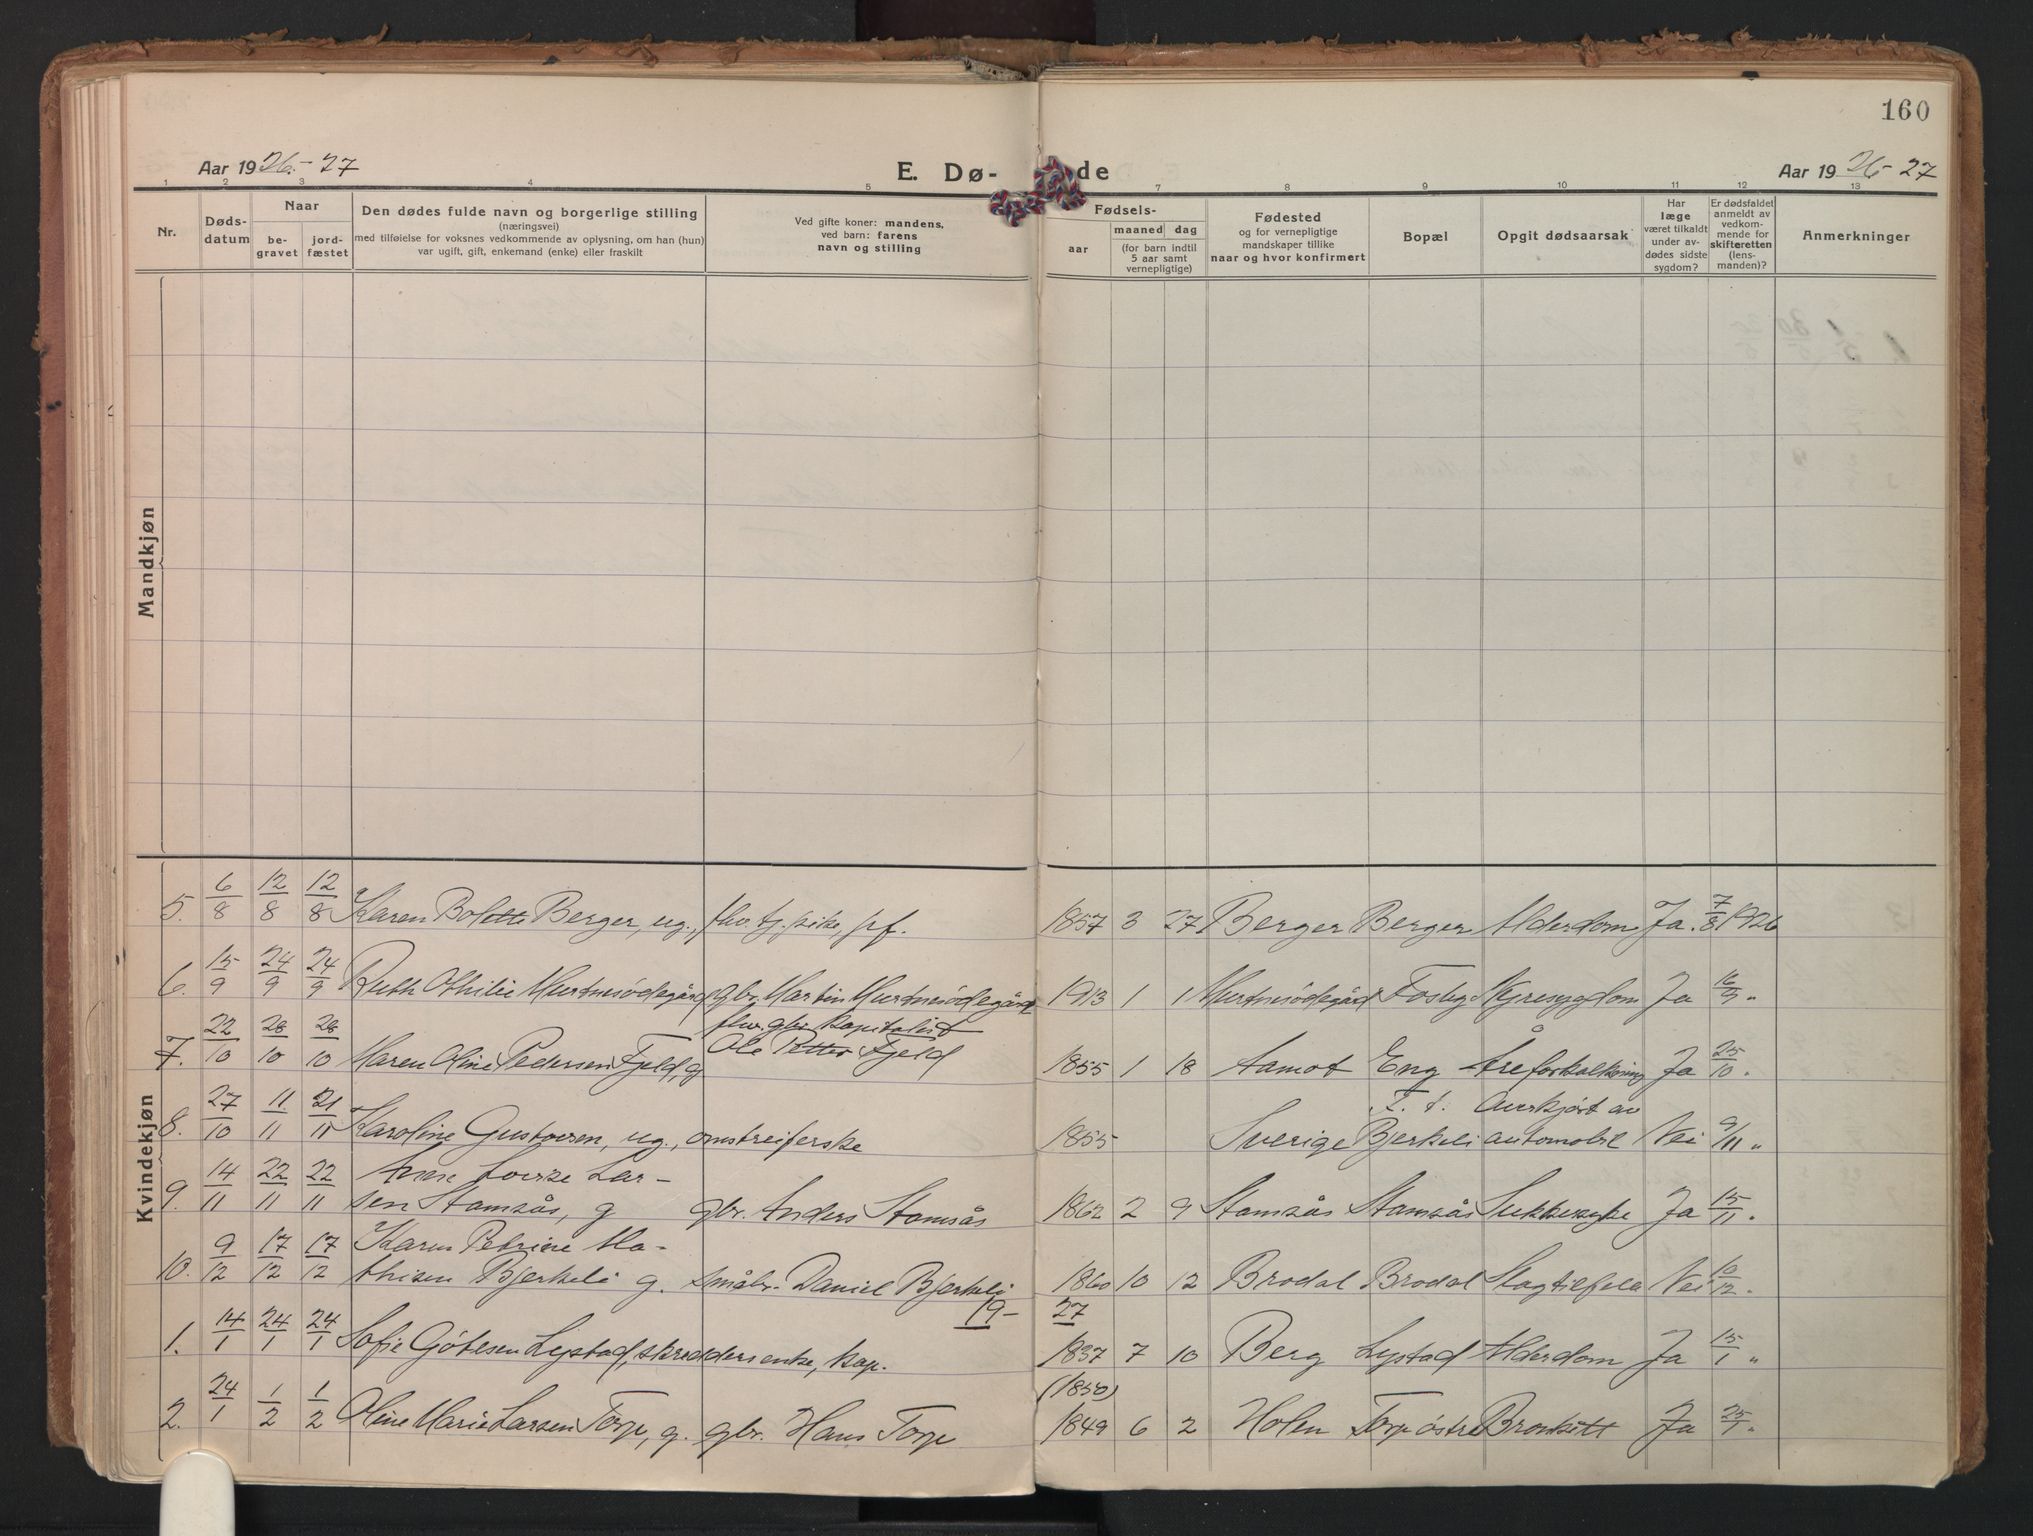 160
Aar 1926-27
E. Dø-
de
Aar 1926-27
1 2 3 4 5 7 8 9 10 11 12 13
Nr.
Døds-
datum
Naar
be-
gravet
jord-
fæstet
Den dødes fulde navn og borgerlige stilling
(næringsvei)
med tilføielse for voksnes vedkommende av oplysning, om han (hun)
var ugift, gift, enkemand (enke) eller fraskilt
Ved gifte koner: mandens,
ved barn: farens
navn og stilling
Fødsels-
aar
maaned dag
(for barn indtil
5 aar samt
vernepligtige)
Fødested
og for vernepligtige
mandskaper tillike
naar og hvor konfirmert
Bopæl
Opgit dødsaarsak
Har
læge
været tilkaldt
under av-
dødes sidste
sygdom?
Er dødsfaldet
anmeldt av
vedkom-
mende for
skifteretten
(lens-
manden)?
Anmerkninger
Mandkjøn
Kvindekjøn
5. 6/8 12/8 12/8 Karen Bolette Berger, ug., fhv. tj. pike, 1857 3 27 Berger Berger Alderdom Ja 7/8 1926
6. 15/9 24/9 24/9 Ruth Othilie Murtnesødegård gbr. Martin Murtnesødegård 1913 1 1 Murtnesødegård Fosby Nyresygdom Ja 16/9 "
7. 22/10 28/10 28/10 Maren Oline Pedersen Fjeld, g. fhv. gbr. kapitalist
Ole Petter Fjeld 1855 1 18 Aamot Eng Åreforkalkning Ja 25/10 "
8. 27/10 11/11 21/11 Karoline Gustavsen, ug., omstreiferske 1855 Sverige F. t.
Bjerkeli Overkjørt av
automobil Nei 9/11 "
9. 14/11 22/11 22/11 Anne Lovise Lar-
sen Stamsås, g gbr. Anders Stamsås 1862 2 9 Stamsås Stamsås Sukkersyke Ja 15/11 "
10. 9/12 17/12 17/12 Karen Petrine Ma-
thisen Bjerkeli g. småbr. Daniel Bjerkeli 1860 10 12 Brodal Brodal Slagtilfele Nei 10/12 "
19-27
1. 14/1 24/1 24/1 Sofie Gøtesen Lystad, skreddersenke, kap. 1837 7 10 Berg Lystad Alderdom Ja 15/1 "
2. 24/1 1/2 1/2 Oline Marie Larsen Torp, g. gbr. Hans Torp (1850)
1849 6 2 Holen Torp østre Bronkitt Ja 25/1 "